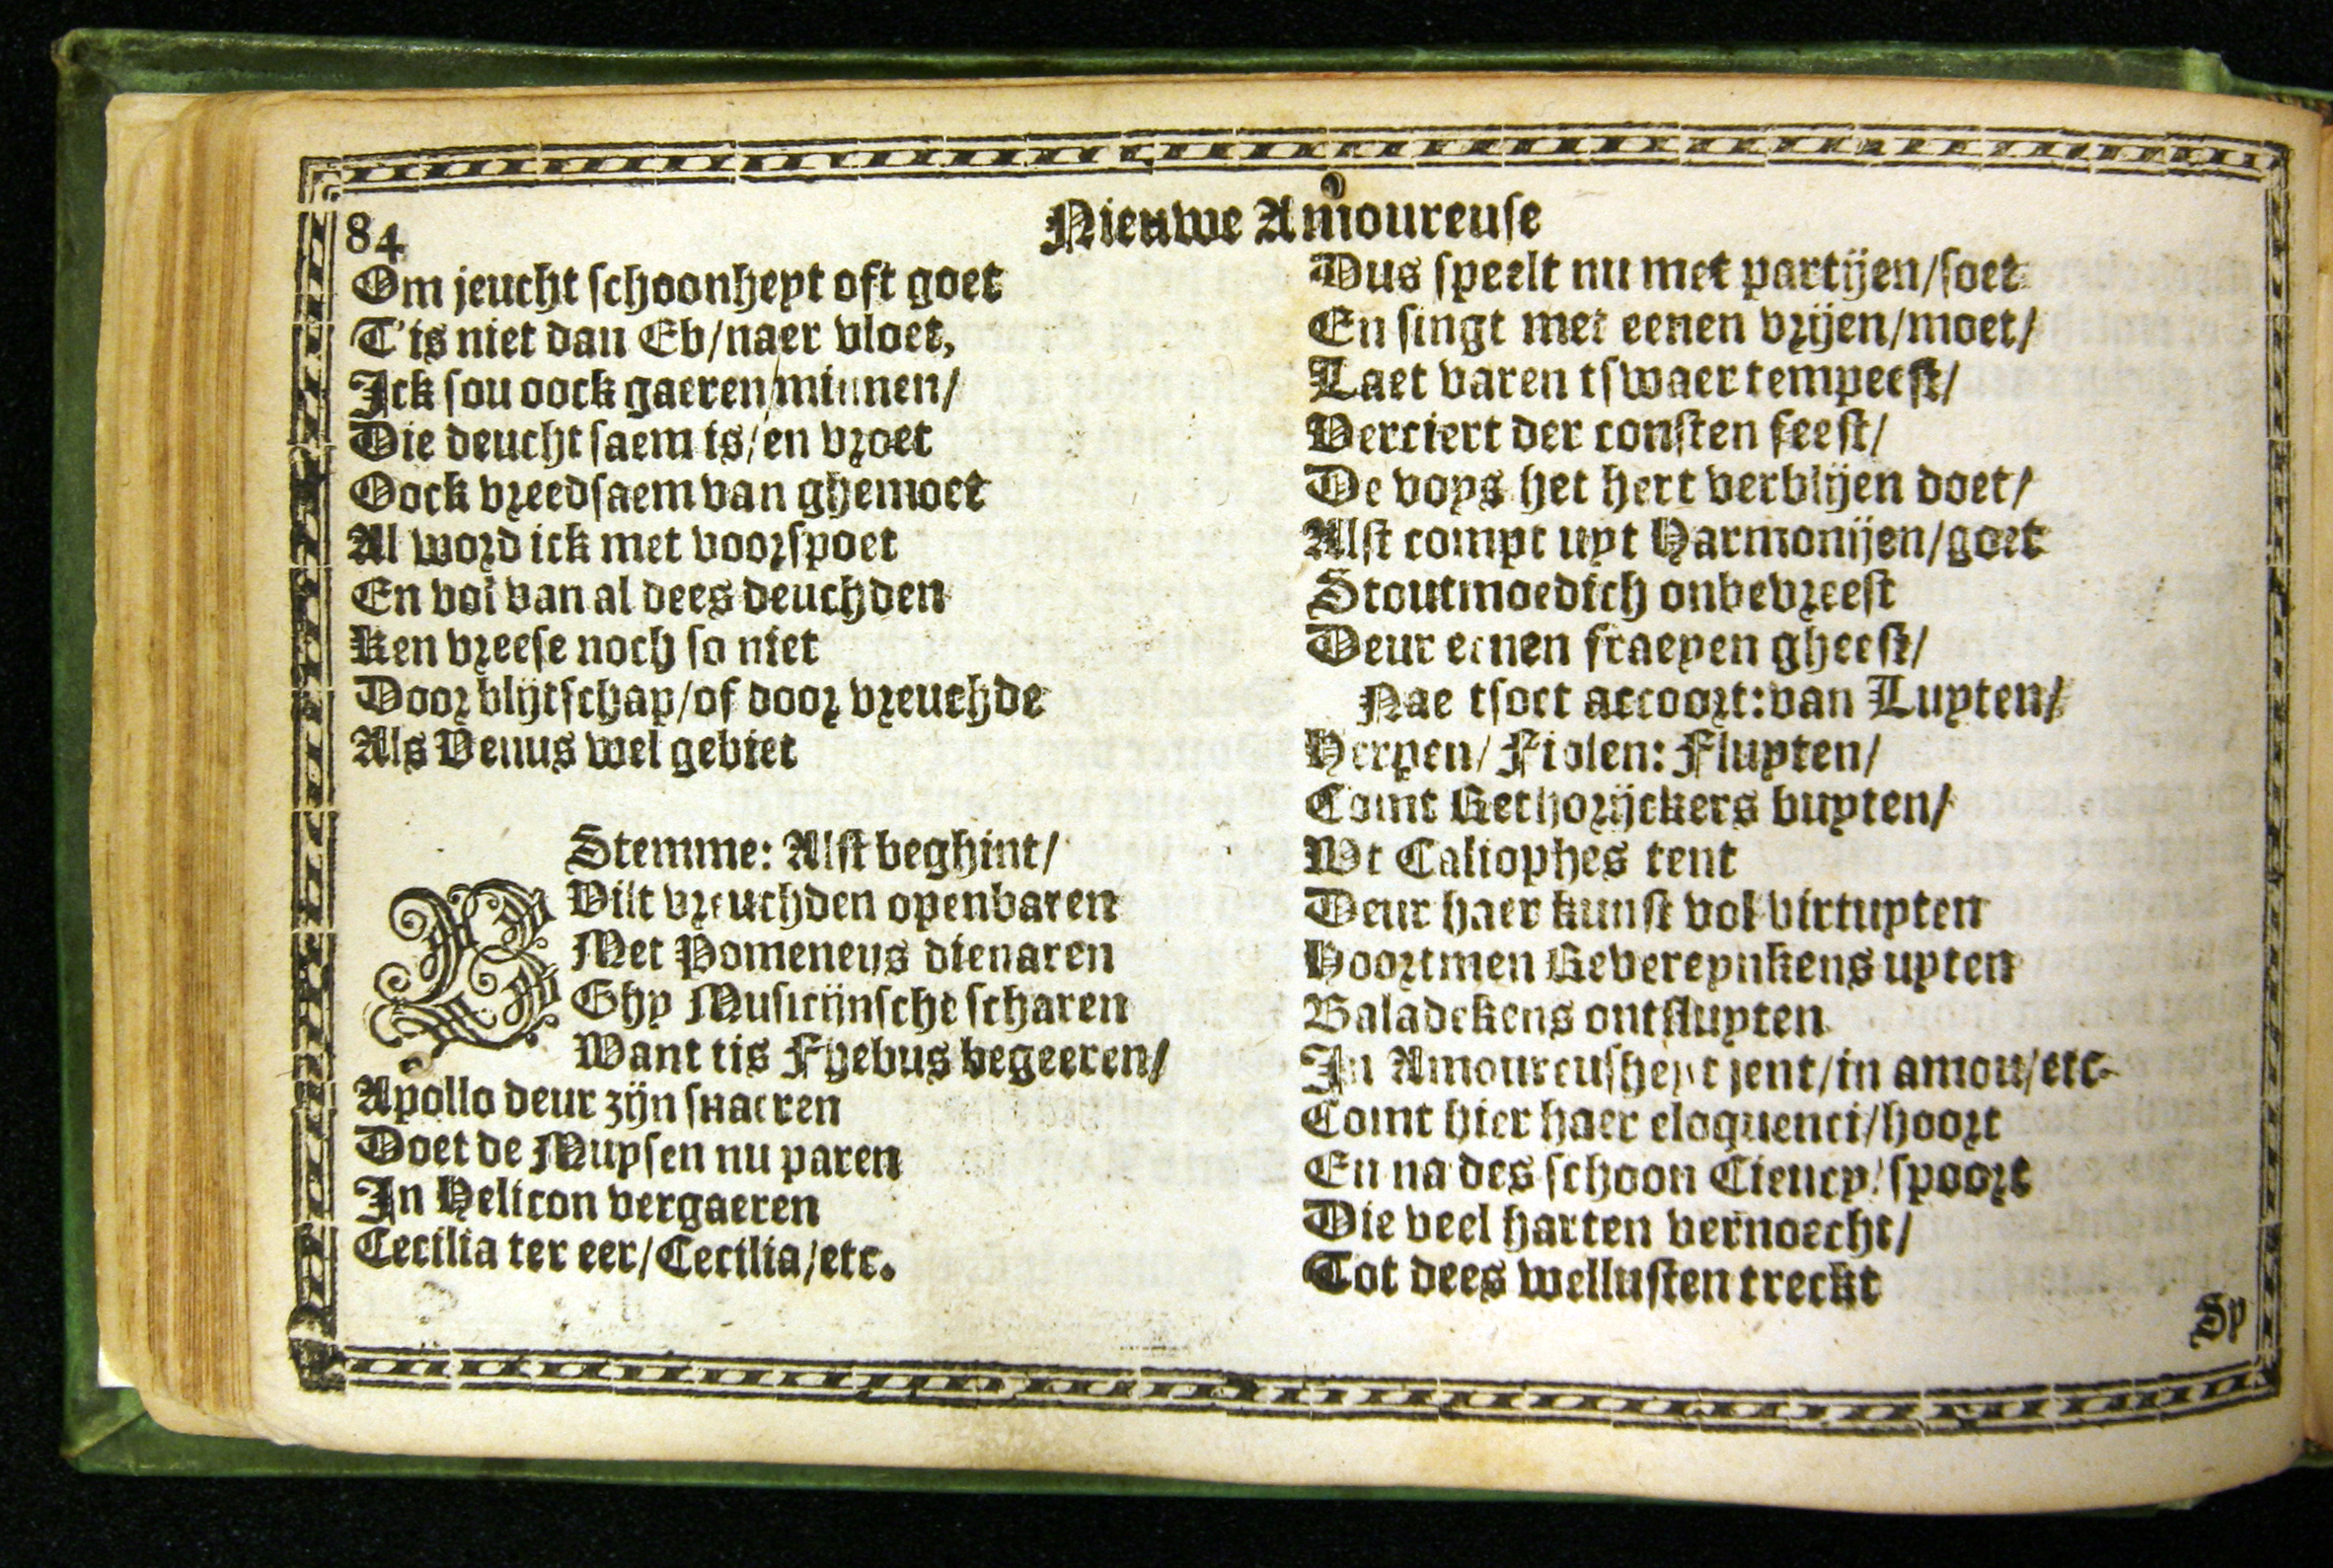 84
Nieuwe Amoureuse
Om jeucht schoonheyt oft goet
T'is niet dan Eb/naer vloet,
Ick sou oock gaeren/minnen/
Die deucht saem is/en vroet
Oock vreedsaem van ghemoet
Al word ick met voorspoet
En vol van al dees deuchden
Ken vreese noch so niet
Door blijtschap/of door vreuchde
Als Venus wel gebiet
Stemme: Alst beghint/
Wilt vreuchden openbaren
Met Pomeneus dienaren
Ghy Musicijnsche scharen
Want tis Fyebus begeeren/
Apollo deur zijn snaeren
Doet de Muysen nu paren
In Helicon vergaeren
Cecilia ter eer/Cecilia/etc.
Dus speelt nu met partijen/soet
En singt met eenen vrijen/moet/
Laet varen tswaer tempeest/
Verciert der consten feest/
De voys het hert verblijen doet/
Alst compt uyt Harmonijen/goet
Stoutmoedich onbevreest
Deur eenen fraeyen gheest/
Nae tsoet accoort: van Luyten/
Herpen/Fiolen: Fluyten/
Comt Rethorijckers buyten/
Wt Caliophes tent
Deur haer kunst vol virtuyten
Hoortmen Revereynkens uyten
Baladekens ontsluyten
In Amoureusheyt jent/in amou/etc.
Comt hier haer eloquenci/hoort
En na des schoon Ciency/spoort
Die veel harten vernoecht/
Tot dees wellusten treckt
Sy